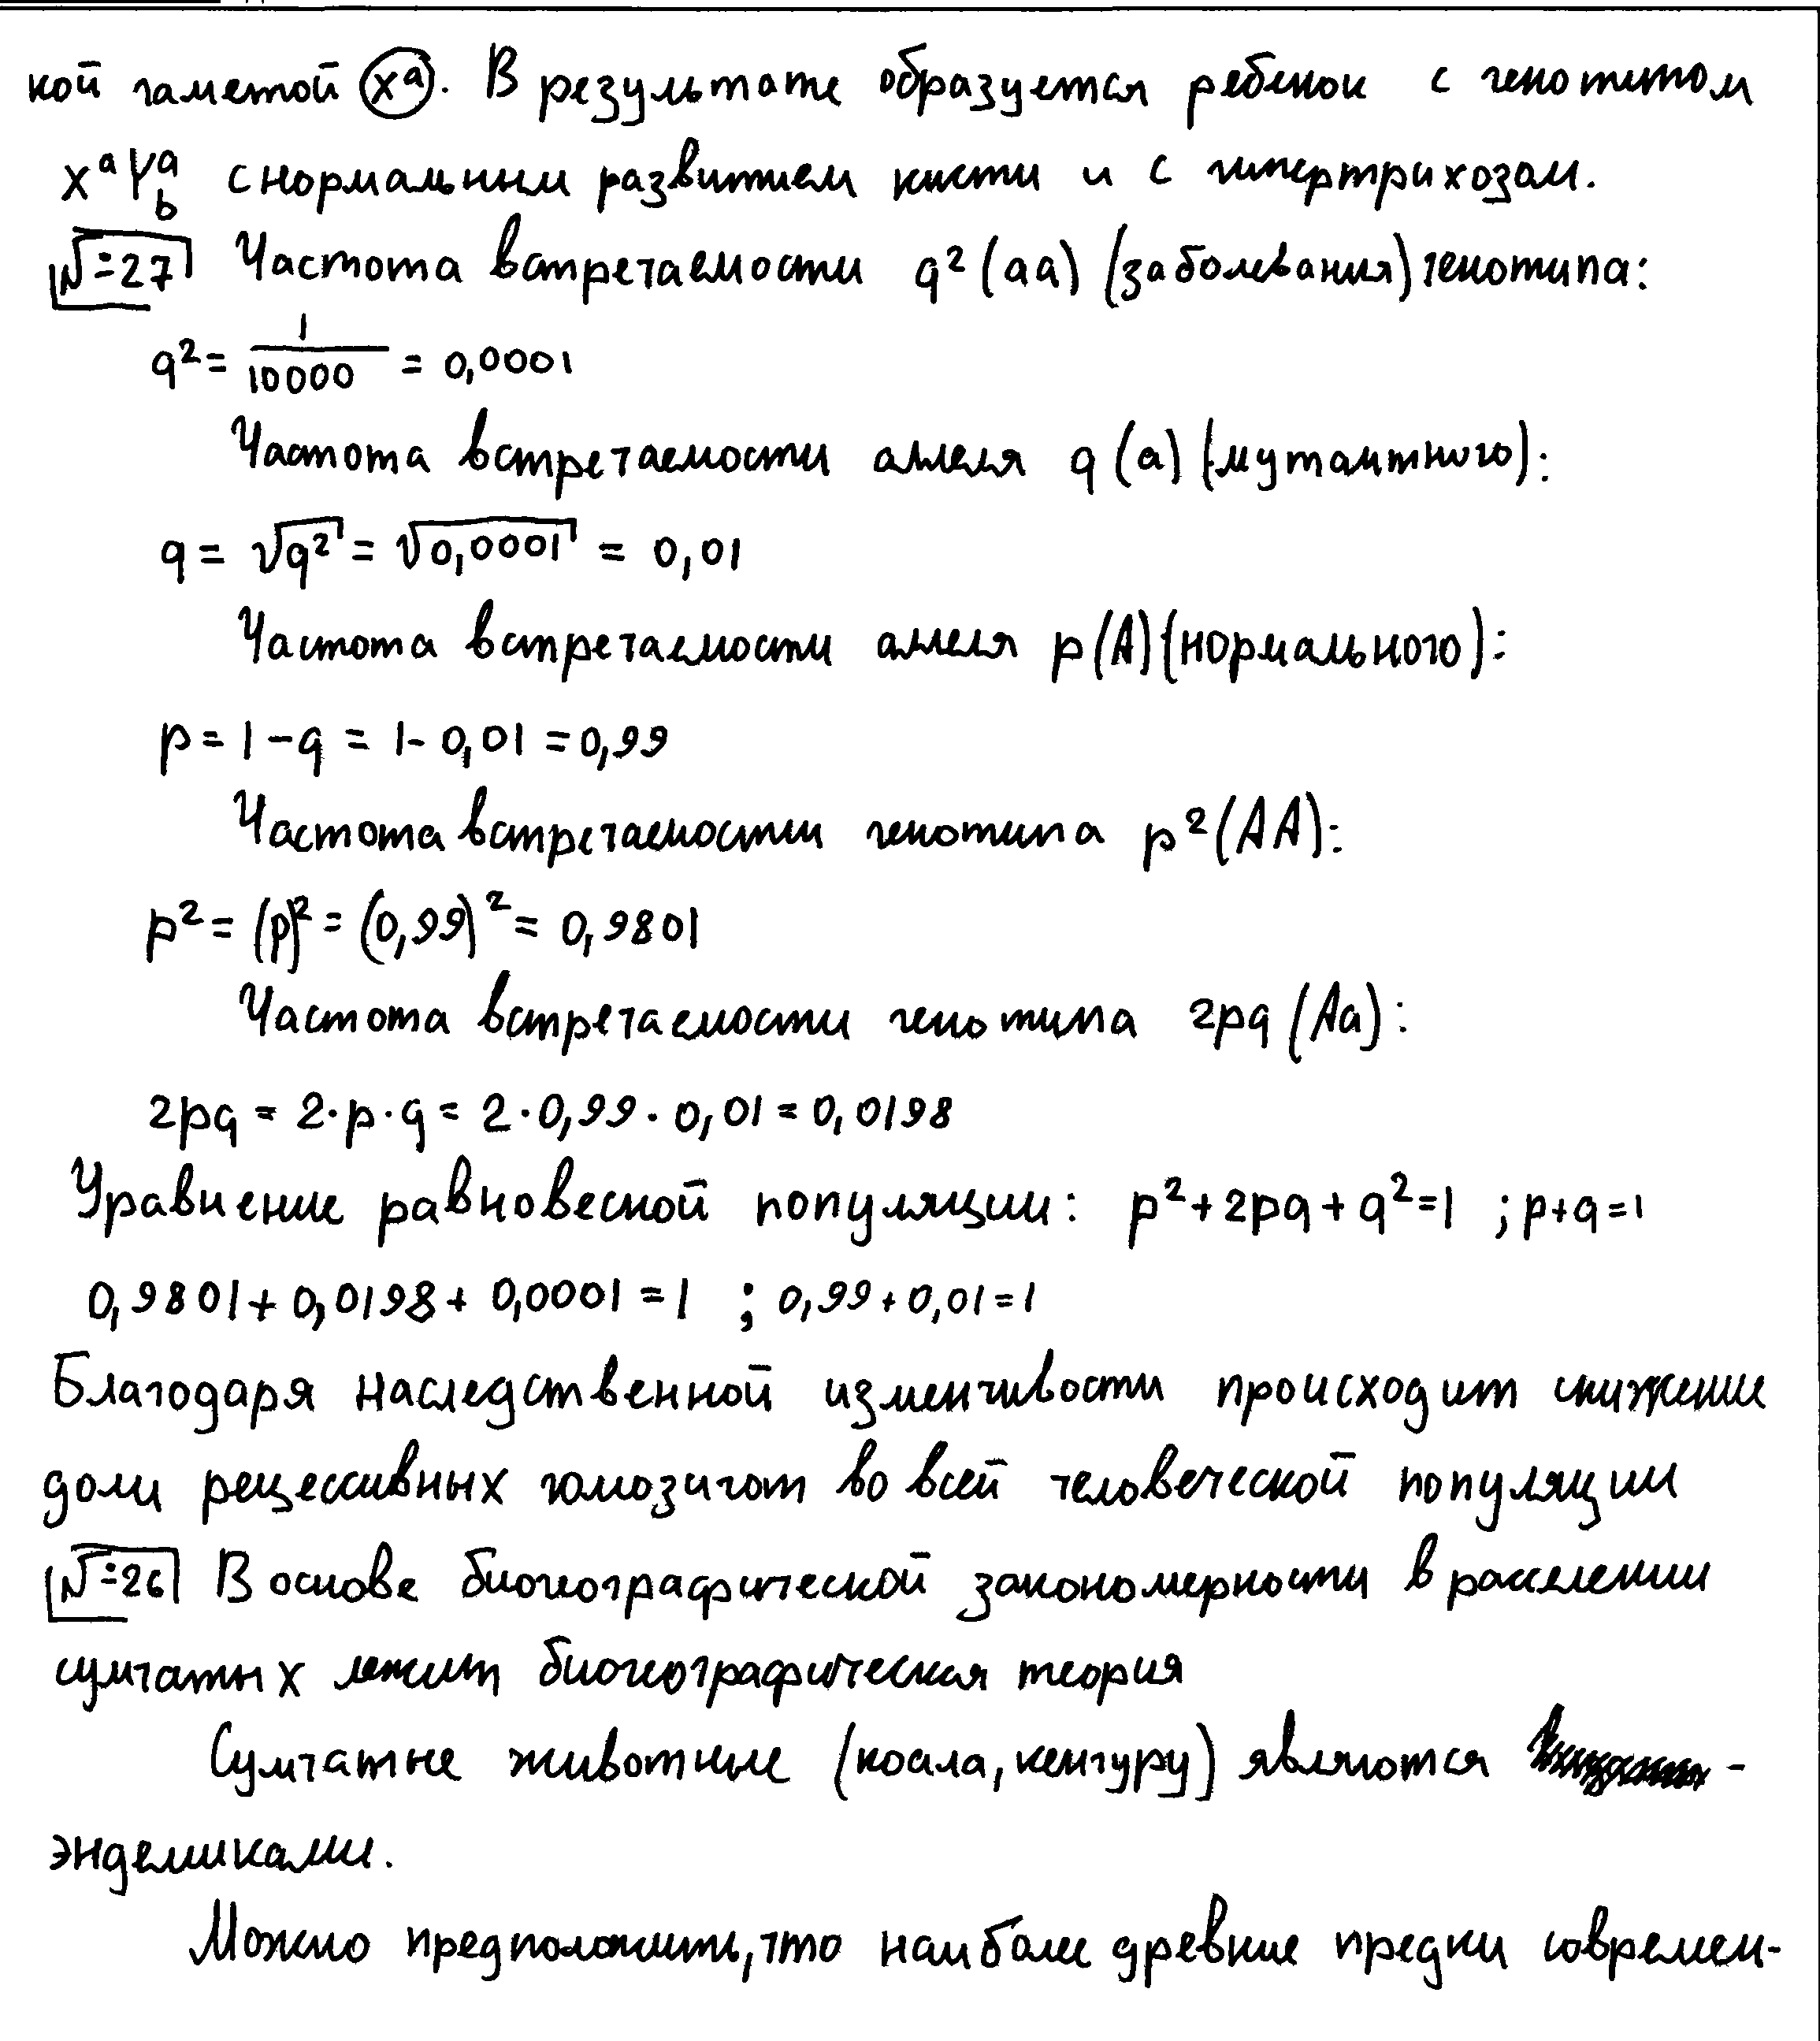 кой гаметой (xᵃ). В результате образуется ребенок с генотипом
xᵃYᵃb с нормальным развитием кисти и с гипертрихозом.
№=27 Частота встречаемости q²(aa) (заболевания) генотипа:
q² = 1/10000 = 0,0001
Частота встречаемости аллеля q (a) (мутантного):
q = √q² = √0,0001 = 0,01
Частота встречаемости аллеля p(A)(нормального):
p = 1 - q = 1 - 0,01 = 0,99
Частота встречаемости генотипа p²(AA):
p² = (p)² = (0,99)² = 0,9801
Частота встречаемости генотипа 2pq (Aa):
2pq = 2·p·q = 2·0,99·0,01 = 0,0198
Уравнение равновесной популяции: p²+2pq+q²=1 ; p+q=1
0,9801+0,0198+0,0001=1 ; 0,99+0,01=1
Благодаря наследственной изменчивости происходит снижение
доли рецессивных гомозигот во всей человеческой популяции
№=26 В основе биогеографической закономерности в расселении
сумчатых лежит биогеографическая теория
Сумчатые животные (коала, кенгуру) являются -
эндемиками.
Можно предположить, что наиболее древние предки современ-